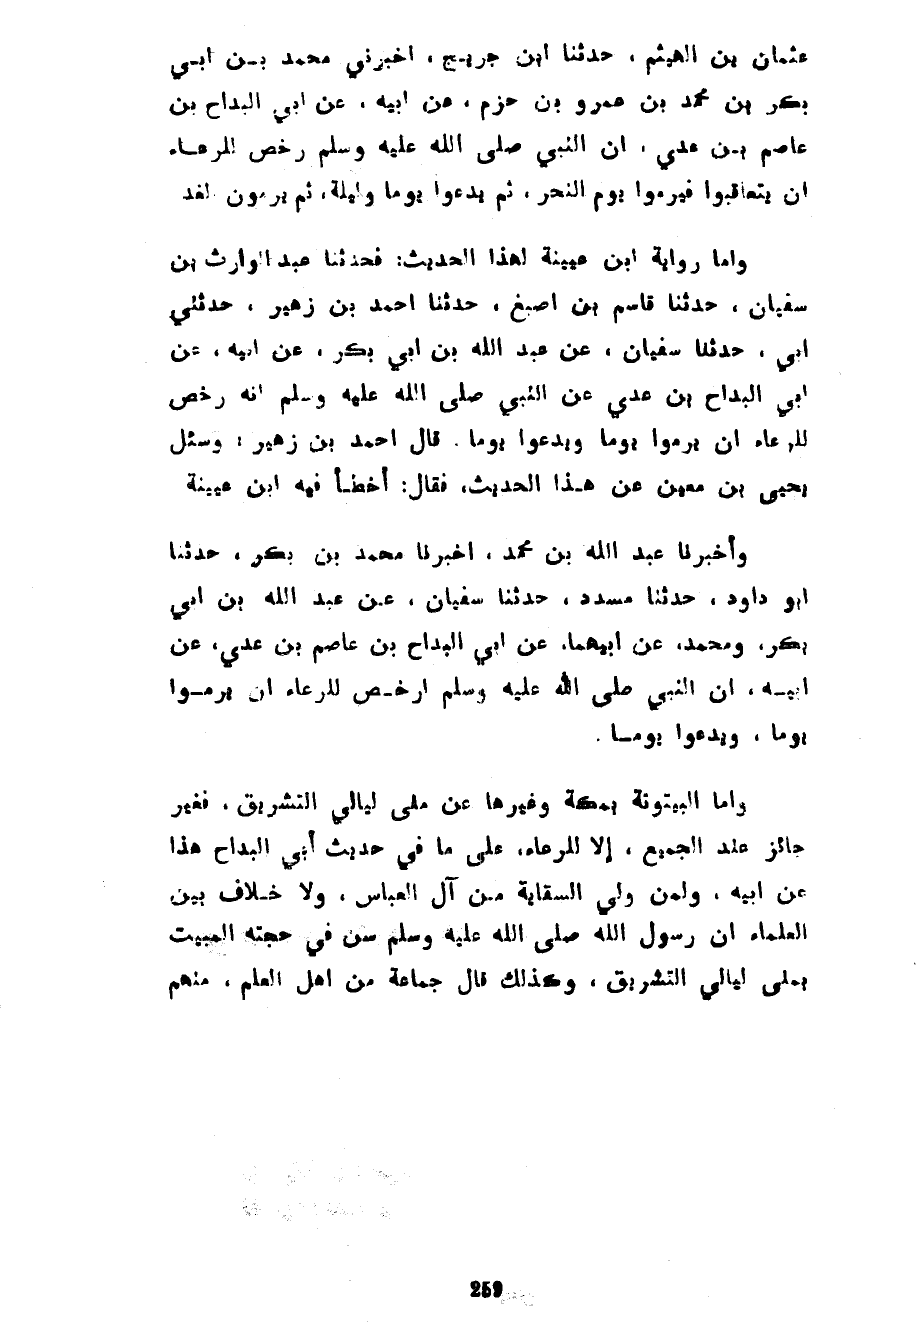 عثمان بن الهيثم ، حدثنا ابن جريج ، اخبرني محمد بن ابي
بكر بن محمد بن عمرو بن حزم ، عن ابيه ، عن ابي البداح بن
عاصم بن عدي ، ان النبي صلى الله عليه وسلم رخص للرعاء
ان يتعاقبوا فيرموا يوم النحر ، ثم يدعوا يوما وليلة، ثم يرمون الغد
واما رواية ابن عيينة لهذا الحديث: فحدثنا عبد الوارث بن
سفيان ، حدثنا قاسم بن اصبغ ، حدثنا احمد بن زهير ، حدثني
ابي ، حدثنا سفيان ، عن عبد الله بن ابي بكر ، عن ابيه ، عن
ابي البداح بن عدي عن النبي صلى الله عليه وسلم انه رخص
للرعاء ان يرموا يوما ويدعوا يوما . قال احمد بن زهير : وسئل
يحيى بن معين عن هذا الحديث، فقال: أخطأ فيه ابن عيينة
وأخبرنا عبد الله بن محمد ، اخبرنا محمد بن بكر ، حدثنا
ابو داود ، حدثنا مسدد ، حدثنا سفيان ، عن عبد الله بن ابي
بكر، ومحمد، عن ابيهما، عن ابي البداح بن عاصم بن عدي، عن
ابيه ، ان النبي صلى الله عليه وسلم ارخص للرعاء ان يرموا
يوما ، ويدعوا يوما .
واما البيتوتة بمكة وغيرها عن منى ليالي التشريق ، فغير
جائز عند الجميع ، إلا للرعاء، على ما في حديث أبي البداح هذا
عن ابيه ، ولمن ولي السقاية من آل العباس ، ولا خلاف بين
العلماء ان رسول الله صلى الله عليه وسلم سن في حجته المبيت
بمنى ليالي التشريق ، وكذلك قال جماعة من اهل العلم ، منهم
259